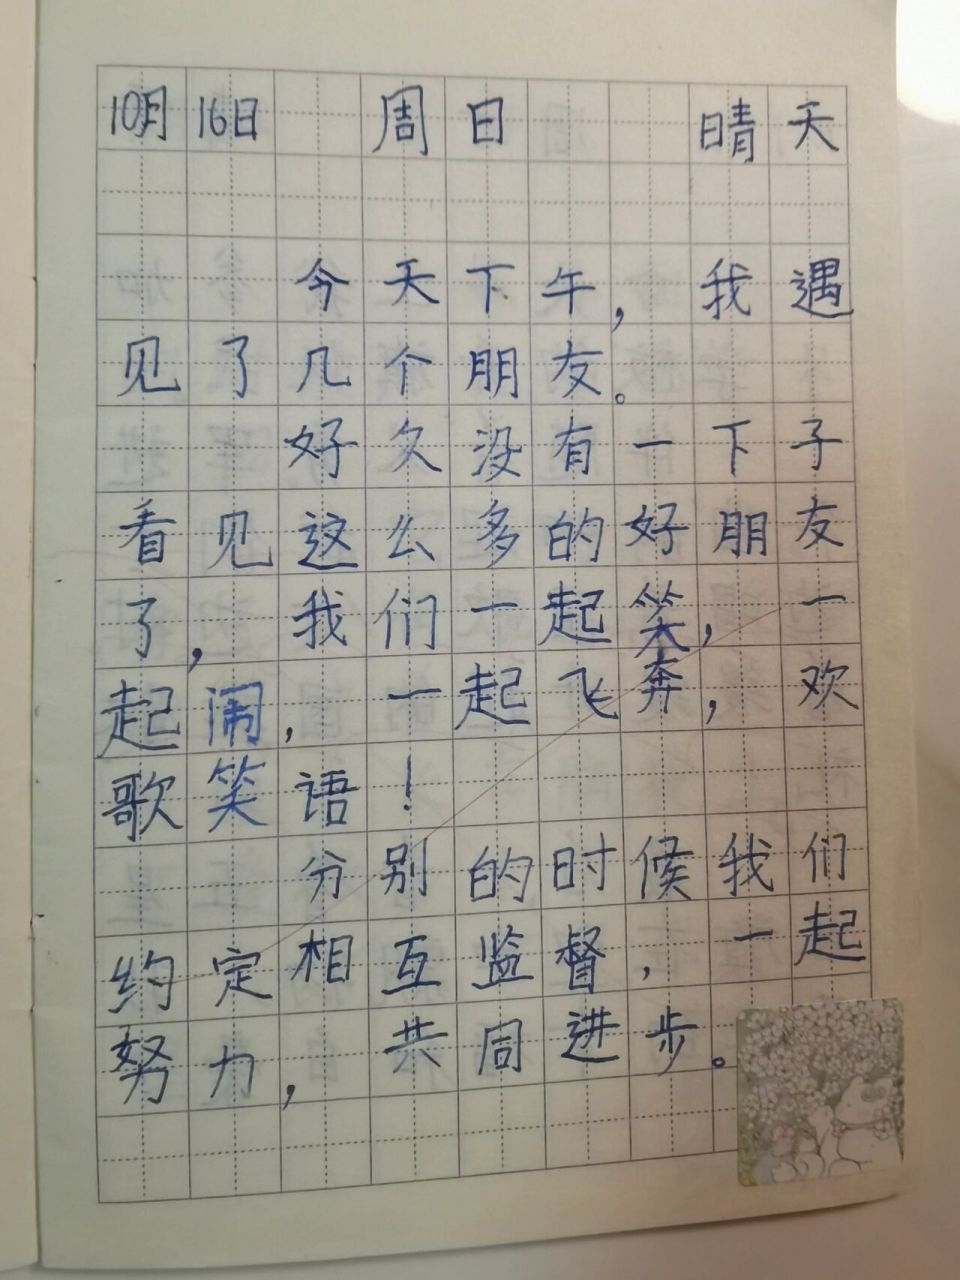 10月16日 周日 晴天
今天下午，我遇
见了几个朋友。
好久没有一下子
看见这么多的好朋友
了，我们一起笑，一
起闹，一起飞奔，欢
歌笑语！
分别的时候我们
约定相互监督，一起
努力，共同进步。